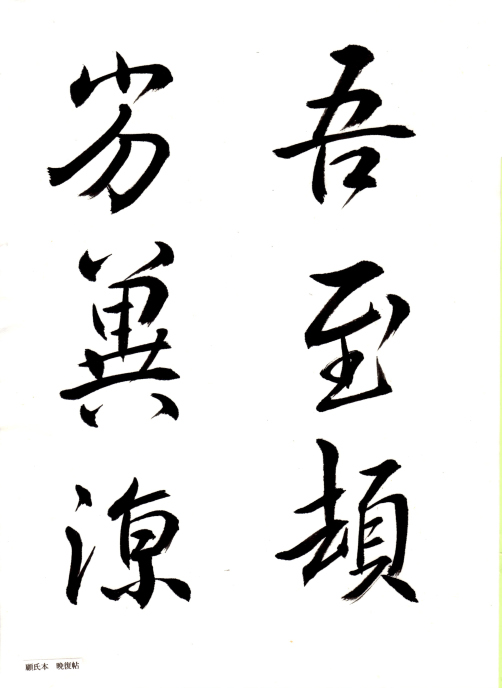 吾至頓
劣冀涼
顧氏本　晩復帖